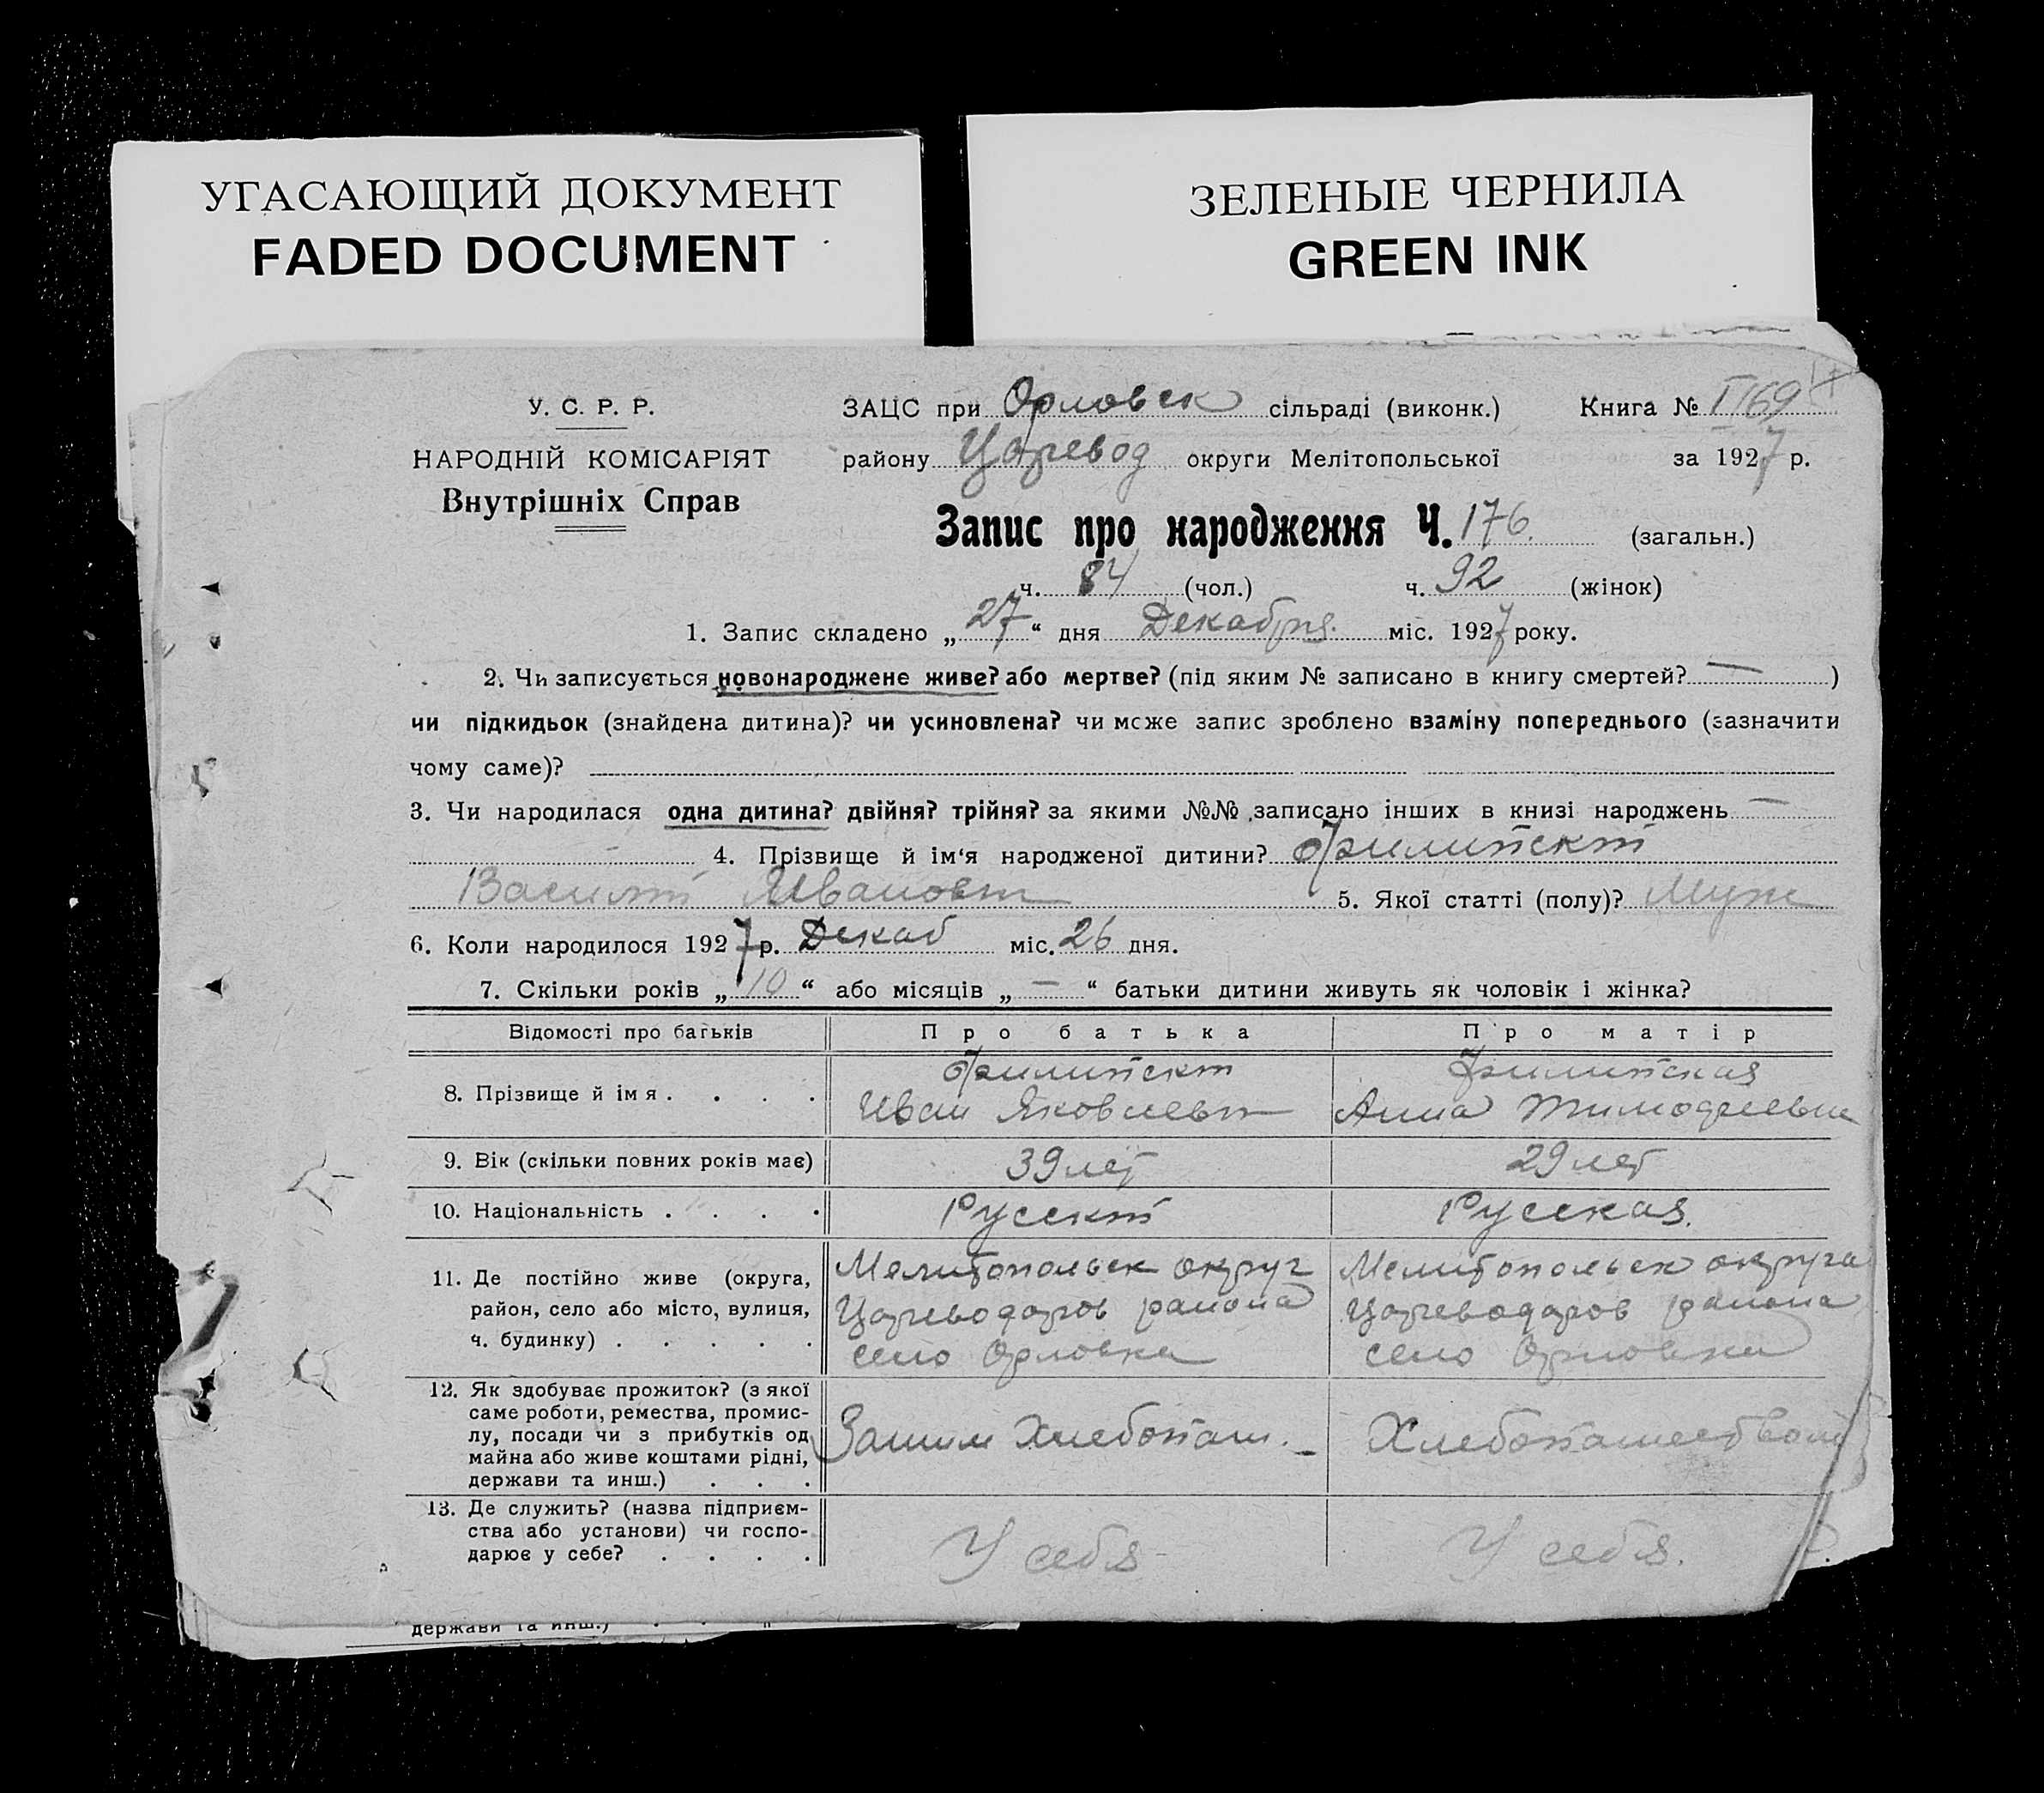 УГАСАЮЩИЙ ДОКУМЕНТ
FADED DOCUMENT
ЗЕЛЕНЫЕ ЧЕРНИЛА
GREEN INK
У. С. Р. Р.
НАРОДНІЙ КОМІСАРІЯТ
Внутрішніх Справ
ЗАЦС при Орловск сільраді (виконк.) Книга №
району Царевод округи Мелітопольської за 1927 р.
Запис про народження Ч. 176. (загальн.)
ч. 84 (чол.) ч. 92 (жінок)
1. Запис складено „27“ дня Декабря. міс. 1927 року.
2. Чи записується новонароджене живе? або мертве? (під яким № записано в книгу смертей? — )
чи підкидьок (знайдена дитина)? чи усиновлена? чи може запис зроблено взаміну попереднього (зазначити
чому саме)?
3. Чи народилася одна дитина? двійня? трійня? за якими №№ записано інших в книзі народжень —
4. Прізвище й ім‘я народженої дитини? Филипский
Василий Иванович 5. Якої статті (полу)? Муж
6. Коли народилося 1927 р. Декаб міс. 26 дня.
7. Скільки років „10“ або місяців „—“ батьки дитини живуть як чоловік і жінка?
Відомості про батьків Про батька Про матір
8. Прізвище й ім я . . . . Филипский Филипская
Иван Яковлевич Анна Тимофеевна
9. Вік (скільки повних років має) 39 лет 29 лет
10. Національність . . . . Русский Русская.
11. Де постійно живе (округа, Мелитопольск округ Мелитопольск округа
район, село або місто, вулиця, Цареводаров района Цареводаров района
ч. будинку) . . . . . село Орловка село Орловка
12. Як здобуває прожиток? (з якої
саме роботи, ремества, промис-
лу, посади чи з прибутків од Хлебопаш. — Хлебопашеством
майна або живе коштами рідні,
держави та инш.) . . .
13. Де служить? (назва підприєм-
ства або установи) чи госпо- У себя У себя.
дарює у себе? . . . .
держави та инш.)